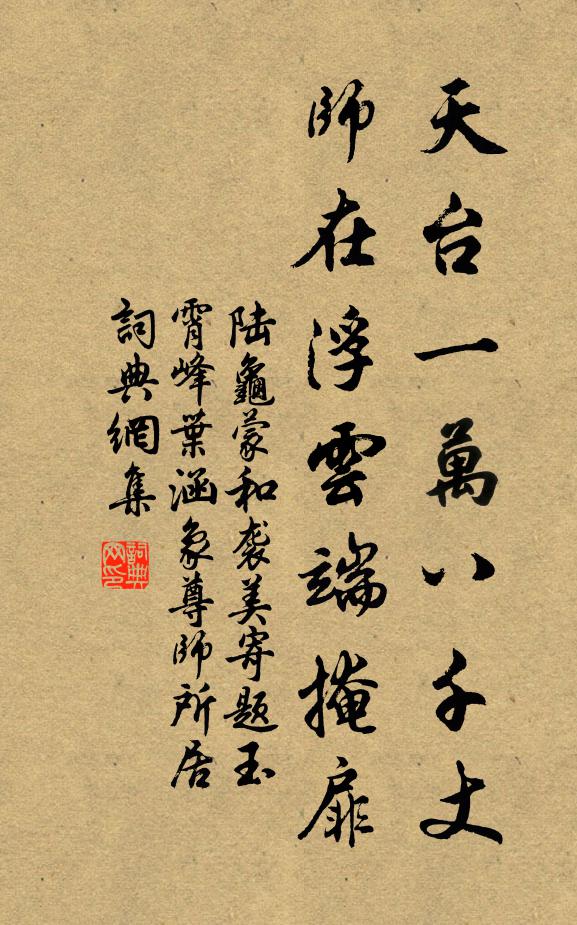 天台一萬八千丈
師在浮雲端掩扉
陆龜蒙和袭美寄题玉
霄峰葉涵象尊師所居
詞典網集
詞典网印